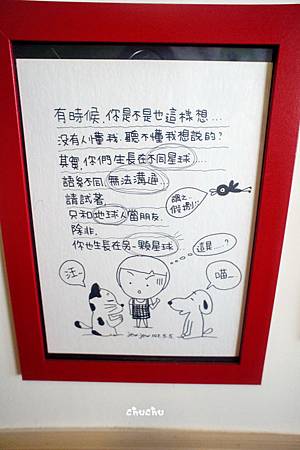 有時候,你是不是也這樣想...
没有人懂我.聽不懂我想說的?
其實,你們生長在不同星球...
語系不同,無法溝通...
請試著,
只和地球人當朋友.
除非,
你也生長在另一顆星球
這是....?
汪...
喵...
chuchu